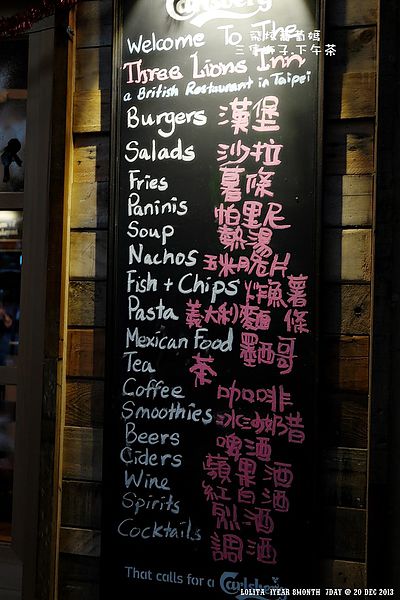 Carlsberg
Welcome To The
Three Lions Inn
a British Restaurant in Taipei
Burgers 漢堡
Salads 沙拉
Fries 薯條
Paninis 帕里尼
Soup 熱湯
Nachos 玉米脆片
Fish + Chips 炸魚薯條
Pasta 義大利麵
Mexican Food 墨西哥
Tea 茶
Coffee 咖啡
Smoothies 冰沙奶昔
Beers 啤酒
Ciders 蘋果酒
Wine 紅白酒
Spirits 烈酒
Cocktails 調酒
That calls for a Carlsberg
LOLITA 1YEAR 8MONTH 7DAY @ 20 DEC 2013